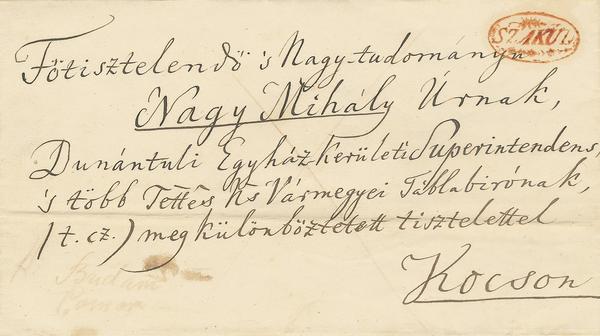 SZAKÚL
Főtisztelendő 's Nagy-tudományu
Nagy Mihály Úrnak,
Dunántuli Egyház kerületi Superintendens,
's több Tettes Ns Vármegyei Táblabirónak,
(t. cz.) megkülönböztetett tisztelettel
Kocson
Budán